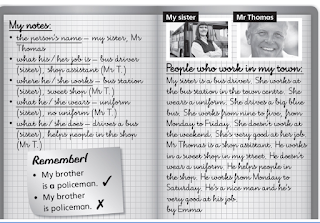 My notes:
• the person's name – my sister, Mr
Thomas
• what his / her job is – bus driver
(sister), shop assistant (Mr T.)
• where he / she works – bus station
(sister), sweet shop (Mr T.)
• what he / she wears – uniform
(sister), no uniform (Mr T.)
• what he / she does – drives a bus
(sister), helps people in the shop
(Mr T.)
Remember!
• My brother
is a policeman. ✓
• My brother
is policeman. ✗
My sister
Mr Thomas
People who work in my town:
My sister is a bus driver. She works at
the bus station in the town centre. She
wears a uniform. She drives a big blue
bus. She works from nine to five, from
Monday to Friday. She doesn't work at
the weekend. She's very good at her job.
Mr Thomas is a shop assistant. He works
in a sweet shop in my street. He doesn't
wear a uniform. He helps people in
the shop. He works from Monday to
Saturday. He's a nice man and he's
very good at his job.
by Emma